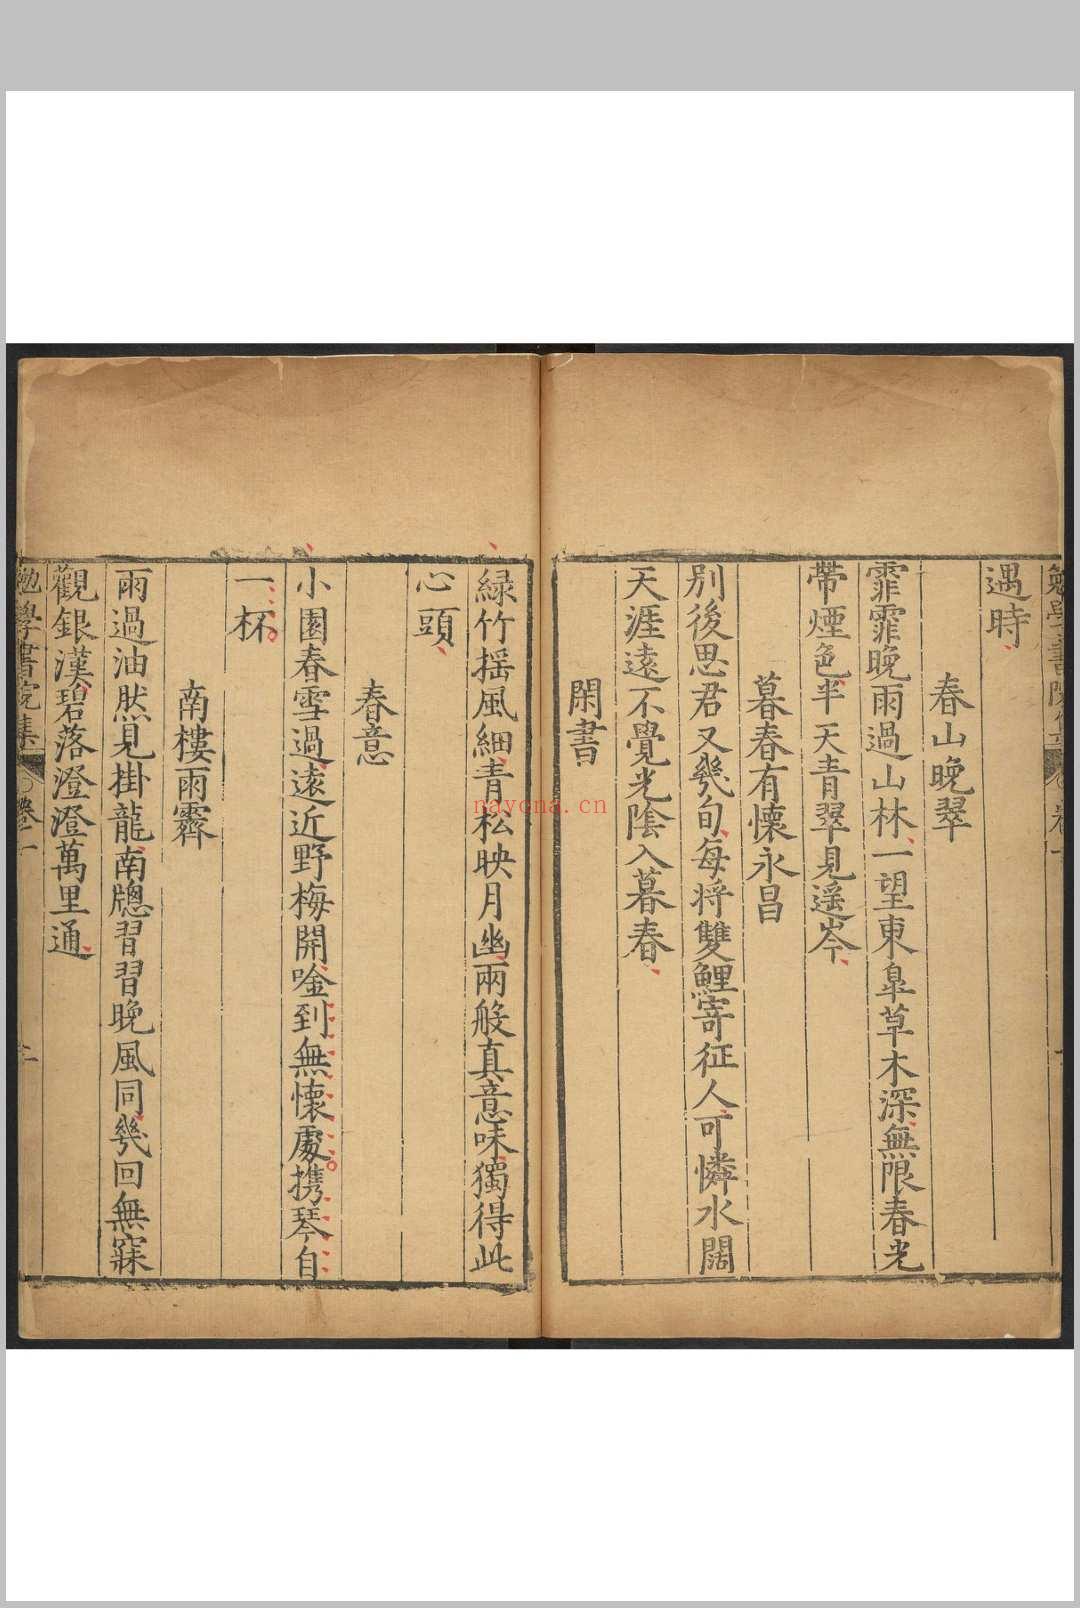 遇時
春山晚翠
霏霏晚雨過山林一望東皐草木深無限春光
帶煙色半天青翠見遥岑
暮春有懷永昌
别後思君又幾旬每將雙鯉寄征人可憐水闊
天涯遠不覺光陰入暮春
閑書
緑竹揺風細青松映月幽兩般真意味獨得此
心頭
春意
小園春雪過遠近野梅開唫到無懷處携琴自
一杯
南樓雨霽
雨過油然見掛龍南牕習習晚風同幾回無寐
觀銀漢碧落澄澄萬里通
勉學書院集 卷一
naycna.cn